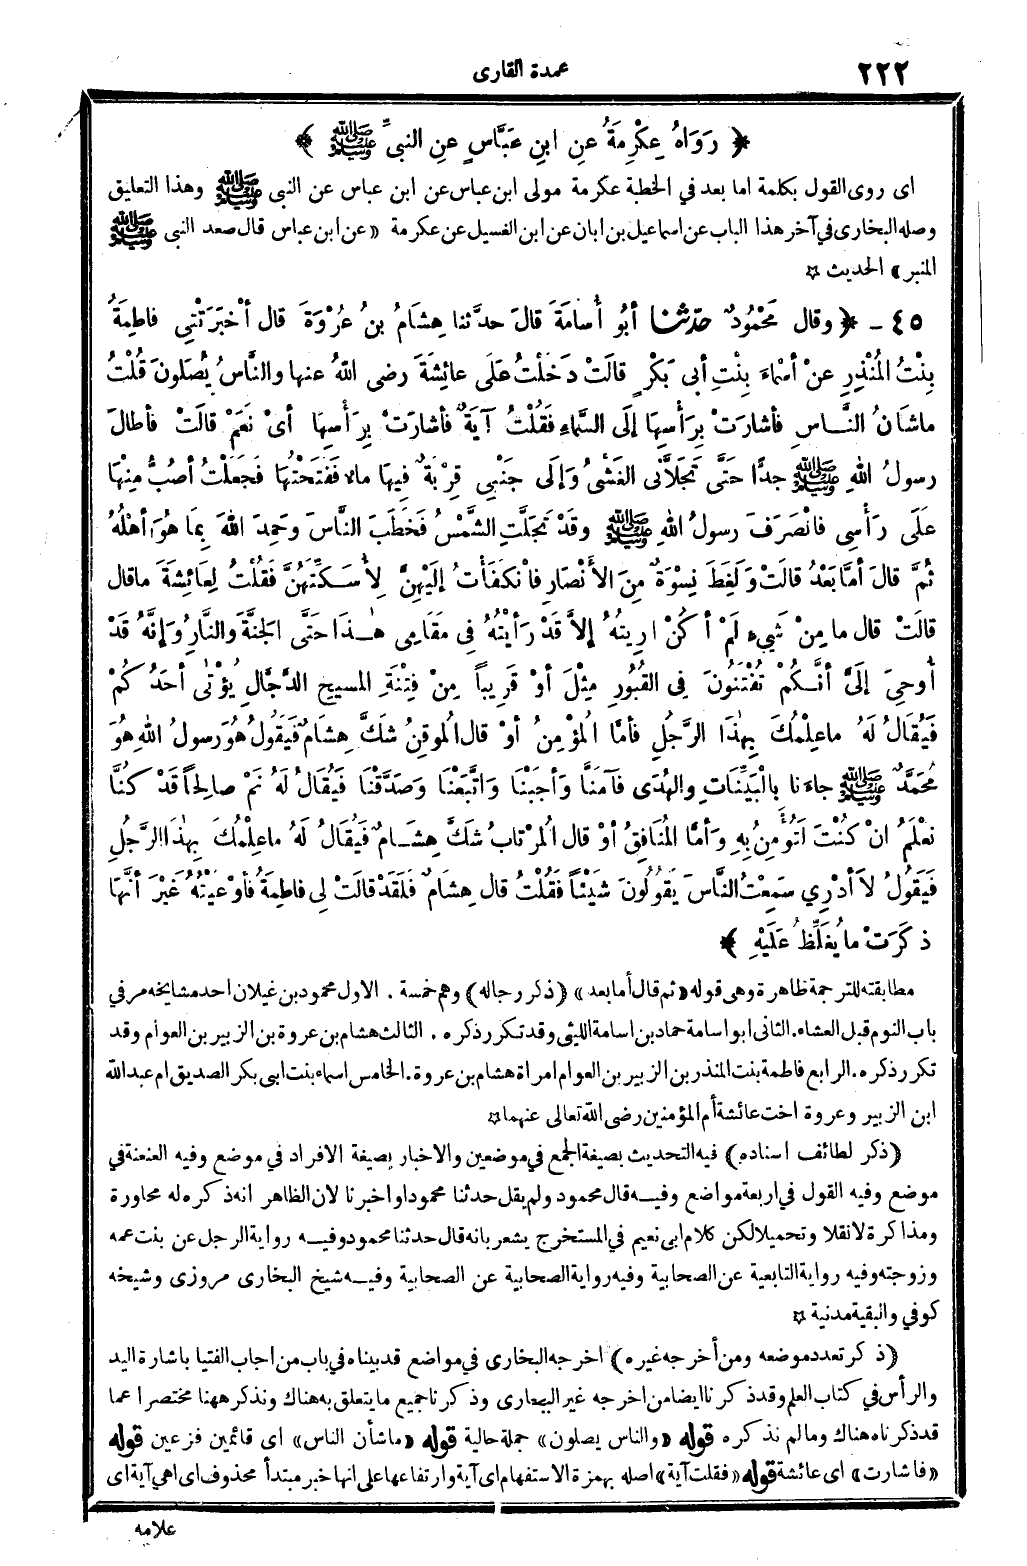 ٢٢٢ عمدة القارى
﴿ رَوَاهُ عِكْرِمَةُ عنِ ابنِ عَبَّاسٍ عنِ النبىِّ ﷺ ﴾
اى روى القول بكلمة اما بعد في الخطبة عكرمة مولى ابن عباس عن ابن عباس عن النبى ﷺ وهذا التعليق
وصله البخارى في آخر هذا الباب عن اسماعيل بن ابان عن ابن الغسيل عن عكرمة «عن ابن عباس قال صعد النبى ﷺ
المنبر» الحديث ☆
٤٥ - ﴿ وقال مَحْمُودٌ حدّثنا أبُو أُسَامَةَ قالَ حدَّثنا هِشَامُ بنُ عُرْوَةَ قال أخْبَرَتْنِى فاطِمَةُ
بِنْتُ المُنْذِرِ عنْ أسْماءَ بِنْتِ أبى بَكْرٍ قالَتْ دَخَلْتُ عَلَى عائِشَةَ رضى اللهُ عنها والنَّاسُ يُصَلونَ قُلْتُ
ماشَانُ النَّاسِ فأشارَتْ بِرَأسِهَا إلَى السَّماءِ فَقُلْتُ آيَةٌ فأشارَتْ بِرَأسِهَا أىْ نَعَمْ قالَتْ فأطالَ
رسولُ اللهِ ﷺ جدًّا حَتَّى تَجَلاَّنى الغَشْىُ وَإلَى جَنْبِى قِرْبَةٌ فِيهَا ماءٌ فَفَتَحْتُهَا فَجَعَلْتُ أصُبُّ مِنْهَا
عَلَى رَأسِى فانْصَرَفَ رسولُ اللهِ ﷺ وقَدْ تَجَلَّتِ الشَّمْسُ فَخَطَبَ النَّاسَ وحَمِدَ اللهَ بِمَا هُوَ أهْلُهُ
ثُمَّ قالَ أمَّا بَعْدُ قالَتْ وَلَغِطَ نِسْوَةٌ مِنَ الأنْصَارِ فانْكَفَأتُ إلَيْهِنَّ لِأُسَكِّتَهُنَّ فَقُلْتُ لِعَائِشَةَ ماقال
قالَتْ قال ما مِنْ شَىْءٍ لَمْ أكُنْ ارِيتُهُ إلاَّ قَدْ رَأيْتُهُ فِى مَقَامِى هَـٰذَا حَتَّى الجَنَّةَ والنَّارَ وَإنَّهُ قَدْ
أُوحِىَ إلَىَّ أنَّكُمْ تُفْتَنُونَ فِى القُبُورِ مِثْلَ أوْ قَرِيباً مِنْ فِتْنَةِ المسِيحِ الدَّجَّالِ يُؤْتَى أحَدُكُمْ
فَيُقَالُ لَهُ ماعِلْمُكَ بِهٰذَا الرَّجُلِ فأمَّا المُؤْمِنُ أوْ قال المُوقِنُ شَكَّ هِشَامٌ فَيَقُولُ هُوَ رسولُ اللهِ هُوَ
مُحَمَّدٌ ﷺ جاءَنا بِالْبَيِّنَاتِ والهُدَى فآمَنَّا وَأجَبْنَا وَاتَّبَعْنَا وَصَدَّقْنَا فَيُقَالُ لَهُ نَمْ صالِحاً قَدْ كُنَّا
نَعْلَمُ انْ كُنْتَ لَتُؤْمِنُ بِهِ وَأمَّا المُنَافِقُ أوْ قال المُرْتابُ شَكَّ هِشَامٌ فَيُقَالُ لَهُ ماعِلْمُكَ بِهٰذَا الرَّجُلِ
فَيَقُولُ لاَ أدْرِى سَمِعْتُ النَّاسَ يَقُولُونَ شَيْئاً فَقُلْتُ قال هِشَامٌ فَلَقَدْ قالَتْ لِى فاطِمَةُ فأوْعَيْتُهُ غَيْرَ أنَّهَا
ذكَرَتْ ما يُغَلِّظُ عَلَيْهِ ﴾
مطابقته للترجمة ظاهرة وهى قوله «ثم قال أما بعد» (ذكر رجاله) وهم خمسة . الاول محمود بن غيلان احد مشايخه مر في
باب النوم قبل العشاء . الثانى ابو اسامة حماد بن اسامة الليثى وقد تكرر ذكره . الثالث هشام بن عروة بن الزبير بن العوام وقد
تكرر ذكره . الرابع فاطمة بنت المنذر بن الزبير بن العوام امرأة هشام بن عروة . الخامس اسماء بنت ابى بكر الصديق ام عبد الله
ابن الزبير وعروة اخت عائشة أم المؤمنين رضى الله تعالى عنهما ☆
(ذكر لطائف اسناده) فيه التحديث بصيغة الجمع في موضعين والاخبار بصيغة الافراد في موضع وفيه العنعنة في
موضع وفيه القول في اربعة مواضع وفيه قال محمود ولم يقل حدثنا محمود او اخبرنا لان الظاهر انه ذكره له محاورة
ومذاكرة لا نقلا وتحميلا لكن كلام ابى نعيم في المستخرج يشعر بانه قال حدثنا محمود وفيه رواية الرجل عن بنت عمه
وزوجته وفيه رواية التابعية عن الصحابية وفيه رواية الصحابية عن الصحابية وفيه شيخ البخارى مروزى وشيخه
كوفي والبقية مدنية ☆
(ذكر تعدد موضعه ومن أخرجه غيره) اخرجه البخارى في مواضع قد بيناه في باب من اجاب الفتيا باشارة اليد
والرأس في كتاب العلم وقد ذكرنا ايضا من اخرجه غير البخارى وذكرنا جميع ما يتعلق به هناك ونذكر ههنا مختصرا عما
قد ذكرناه هناك وما لم نذكره قوله «والناس يصلون» جملة حالية قوله «ماشأن الناس» اى قائمين فزعين قوله
«فاشارت» اى عائشة قوله «فقلت آية» اصله بهمزة الاستفهام اى آية وارتفاعها على انها خبر مبتدأ محذوف اى اهى آية اى
علامه